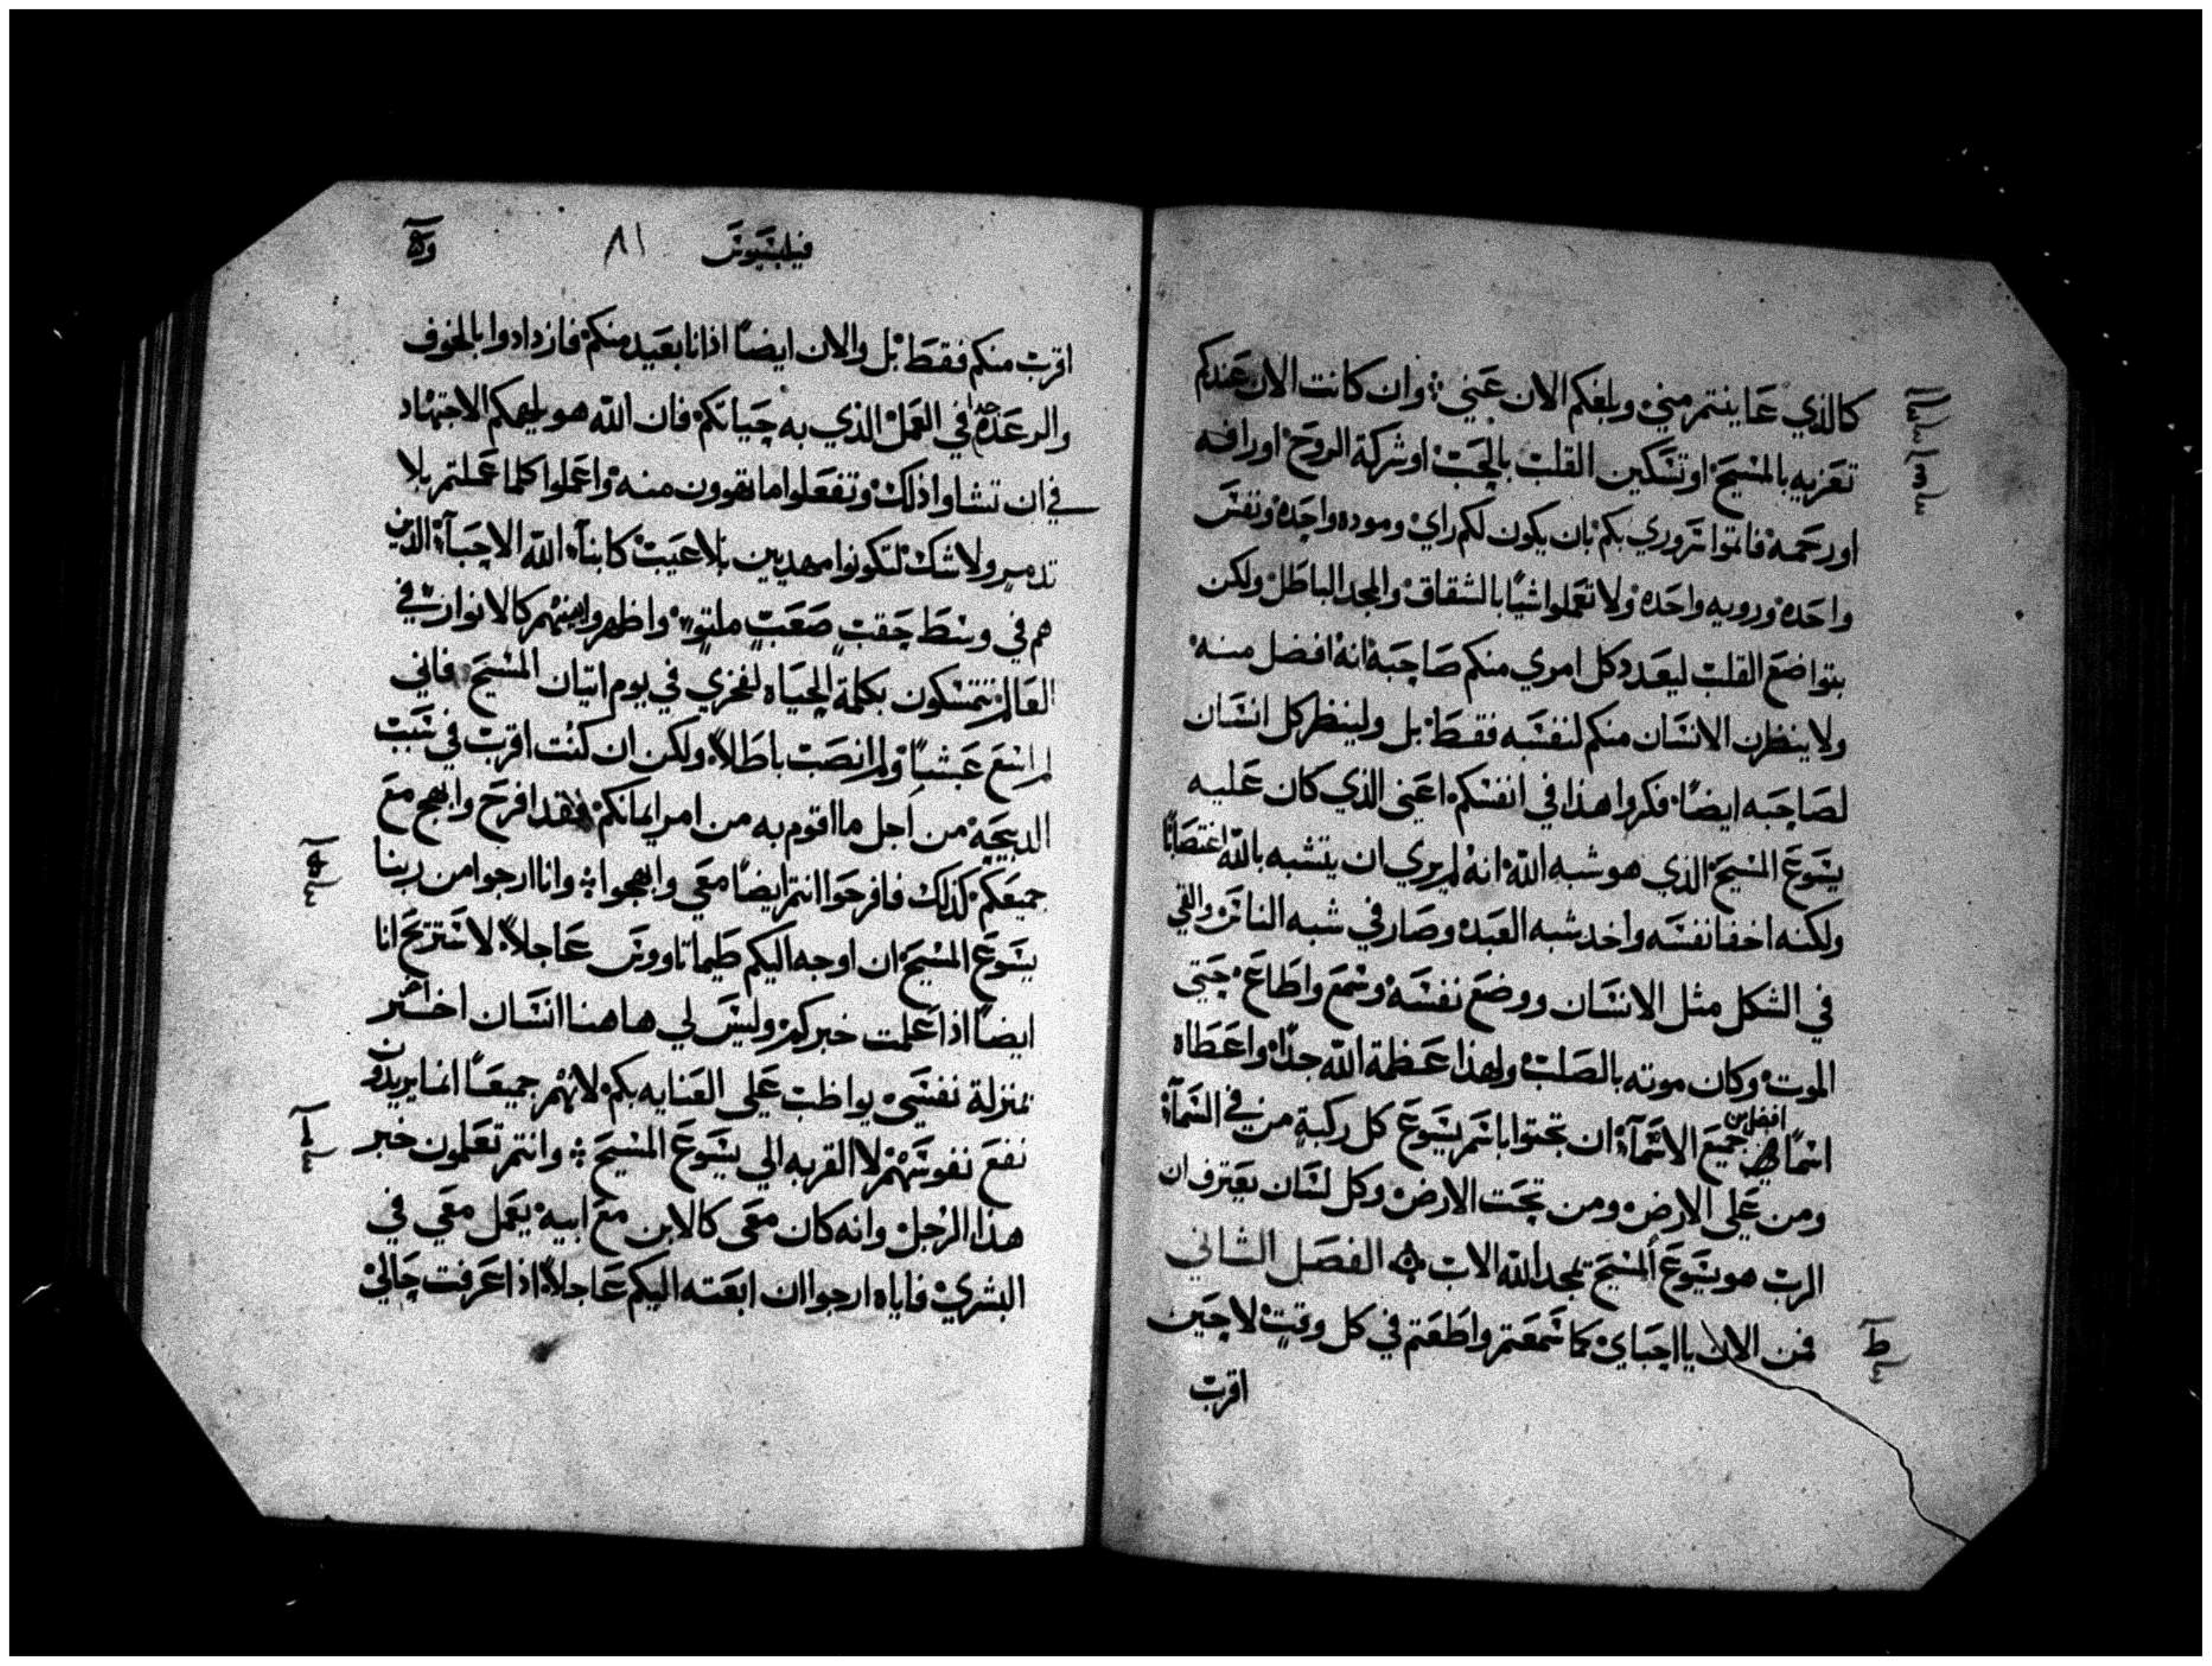 كالذي عاينتم مني وبلغكم الان عني ⁘ وان كانت الان عندكم
تعزيه بالمسيح او تسكين القلب بالحب او شركة الروح او رافه
او رحمه فاتموا سروري بكم بان يكون لكم راي وموده واحده ونفس
واحده ورويه واحده ولا تعملوا شيا بالشقاق والمجد الباطل ولكن
بتواضع القلب ليعدد كل امري منكم صاحبه انه افضل منه
ولا ينظرن الانسان منكم لنفسه فقط بل ولينظر كل انسان
لصاحبه ايضًا فكروا هذا في انفسكم اعني الذي كان عليه
يسوع المسيح الذي هو شبه الله انه لم يري ان يتشبه بالله اغتصابًا
ولكنه اخفا نفسه واخد شبه العبد وصار في شبه الناس والفي
في الشكل مثل الانسان ووضع نفسه وسمع واطاع حتي
الموت وكان موته بالصلب ولهذا عظمة الله جدًا واعطاه
اسمًا افضل من جميع الاسمآء ان تجثوا باسم يسوع كل ركبةٍ من في السمآء
ومن علي الارض ومن تحت الارض وكل لسان يعترف ان
الرب هو يسوع المسيح لمجد الله الاب ۞ الفصل الثاني
ط
فمن الان يا احباي كما سمعتم واطعتم في كل وقتٍ لا حين
اقرب
فيلبسيوس ٨١
اقرب منكم فقط بل والان ايضًا اذ انا بعيد منكم فازدادوا بالخوف
والرعدة جدا في العمل الذي به حياتكم فان الله هو يلهمكم الاجتهاد
في ان تشاوا ذلك وتفعلوا ما تقوون منه واعملوا كلما عملتم بلا
تدمير ولا شك لتكونوا مهديين بلا عيب كابنآء الله الاحبآء الذين
هم في وسط حقبٍ صعبٍ ملتوٍ واظهروا بينهم كالانوار في
العالم تتمسكون بكلمة الحياه لفخري في يوم اتيان المسيح فاني
لم اسع عبثًا ولم انصب باطلاً ولكن ان كنت اقرب في سبب
الدبيحة من اجل ما اقوم به من امر ايمانكم فقد افرح وابهج مع
جميعكم كذلك فافرحوا انتم ايضًا معي وابهجوا ⁘ وانا ارجوا من ربنا
يسوع المسيح ان اوجه اليكم طيماتاووس عاجلاً لاستريح انا
ايضًا اذا علمت خبركم وليس لي هاهنا انسان اخر
بمنزلة نفسي يواظب علي العنايه بكم لانهم جميعًا انما يريدون
نفع نفوسهم لا القربه الي يسوع المسيح ⁘ وانتم تعلمون خبر
هذا الرجل وانه كان معي كالابن مع ابيه يعمل معي في
البشري فاياه ارجوا ان ابعته اليكم عاجلاً اذا عرفت حالي